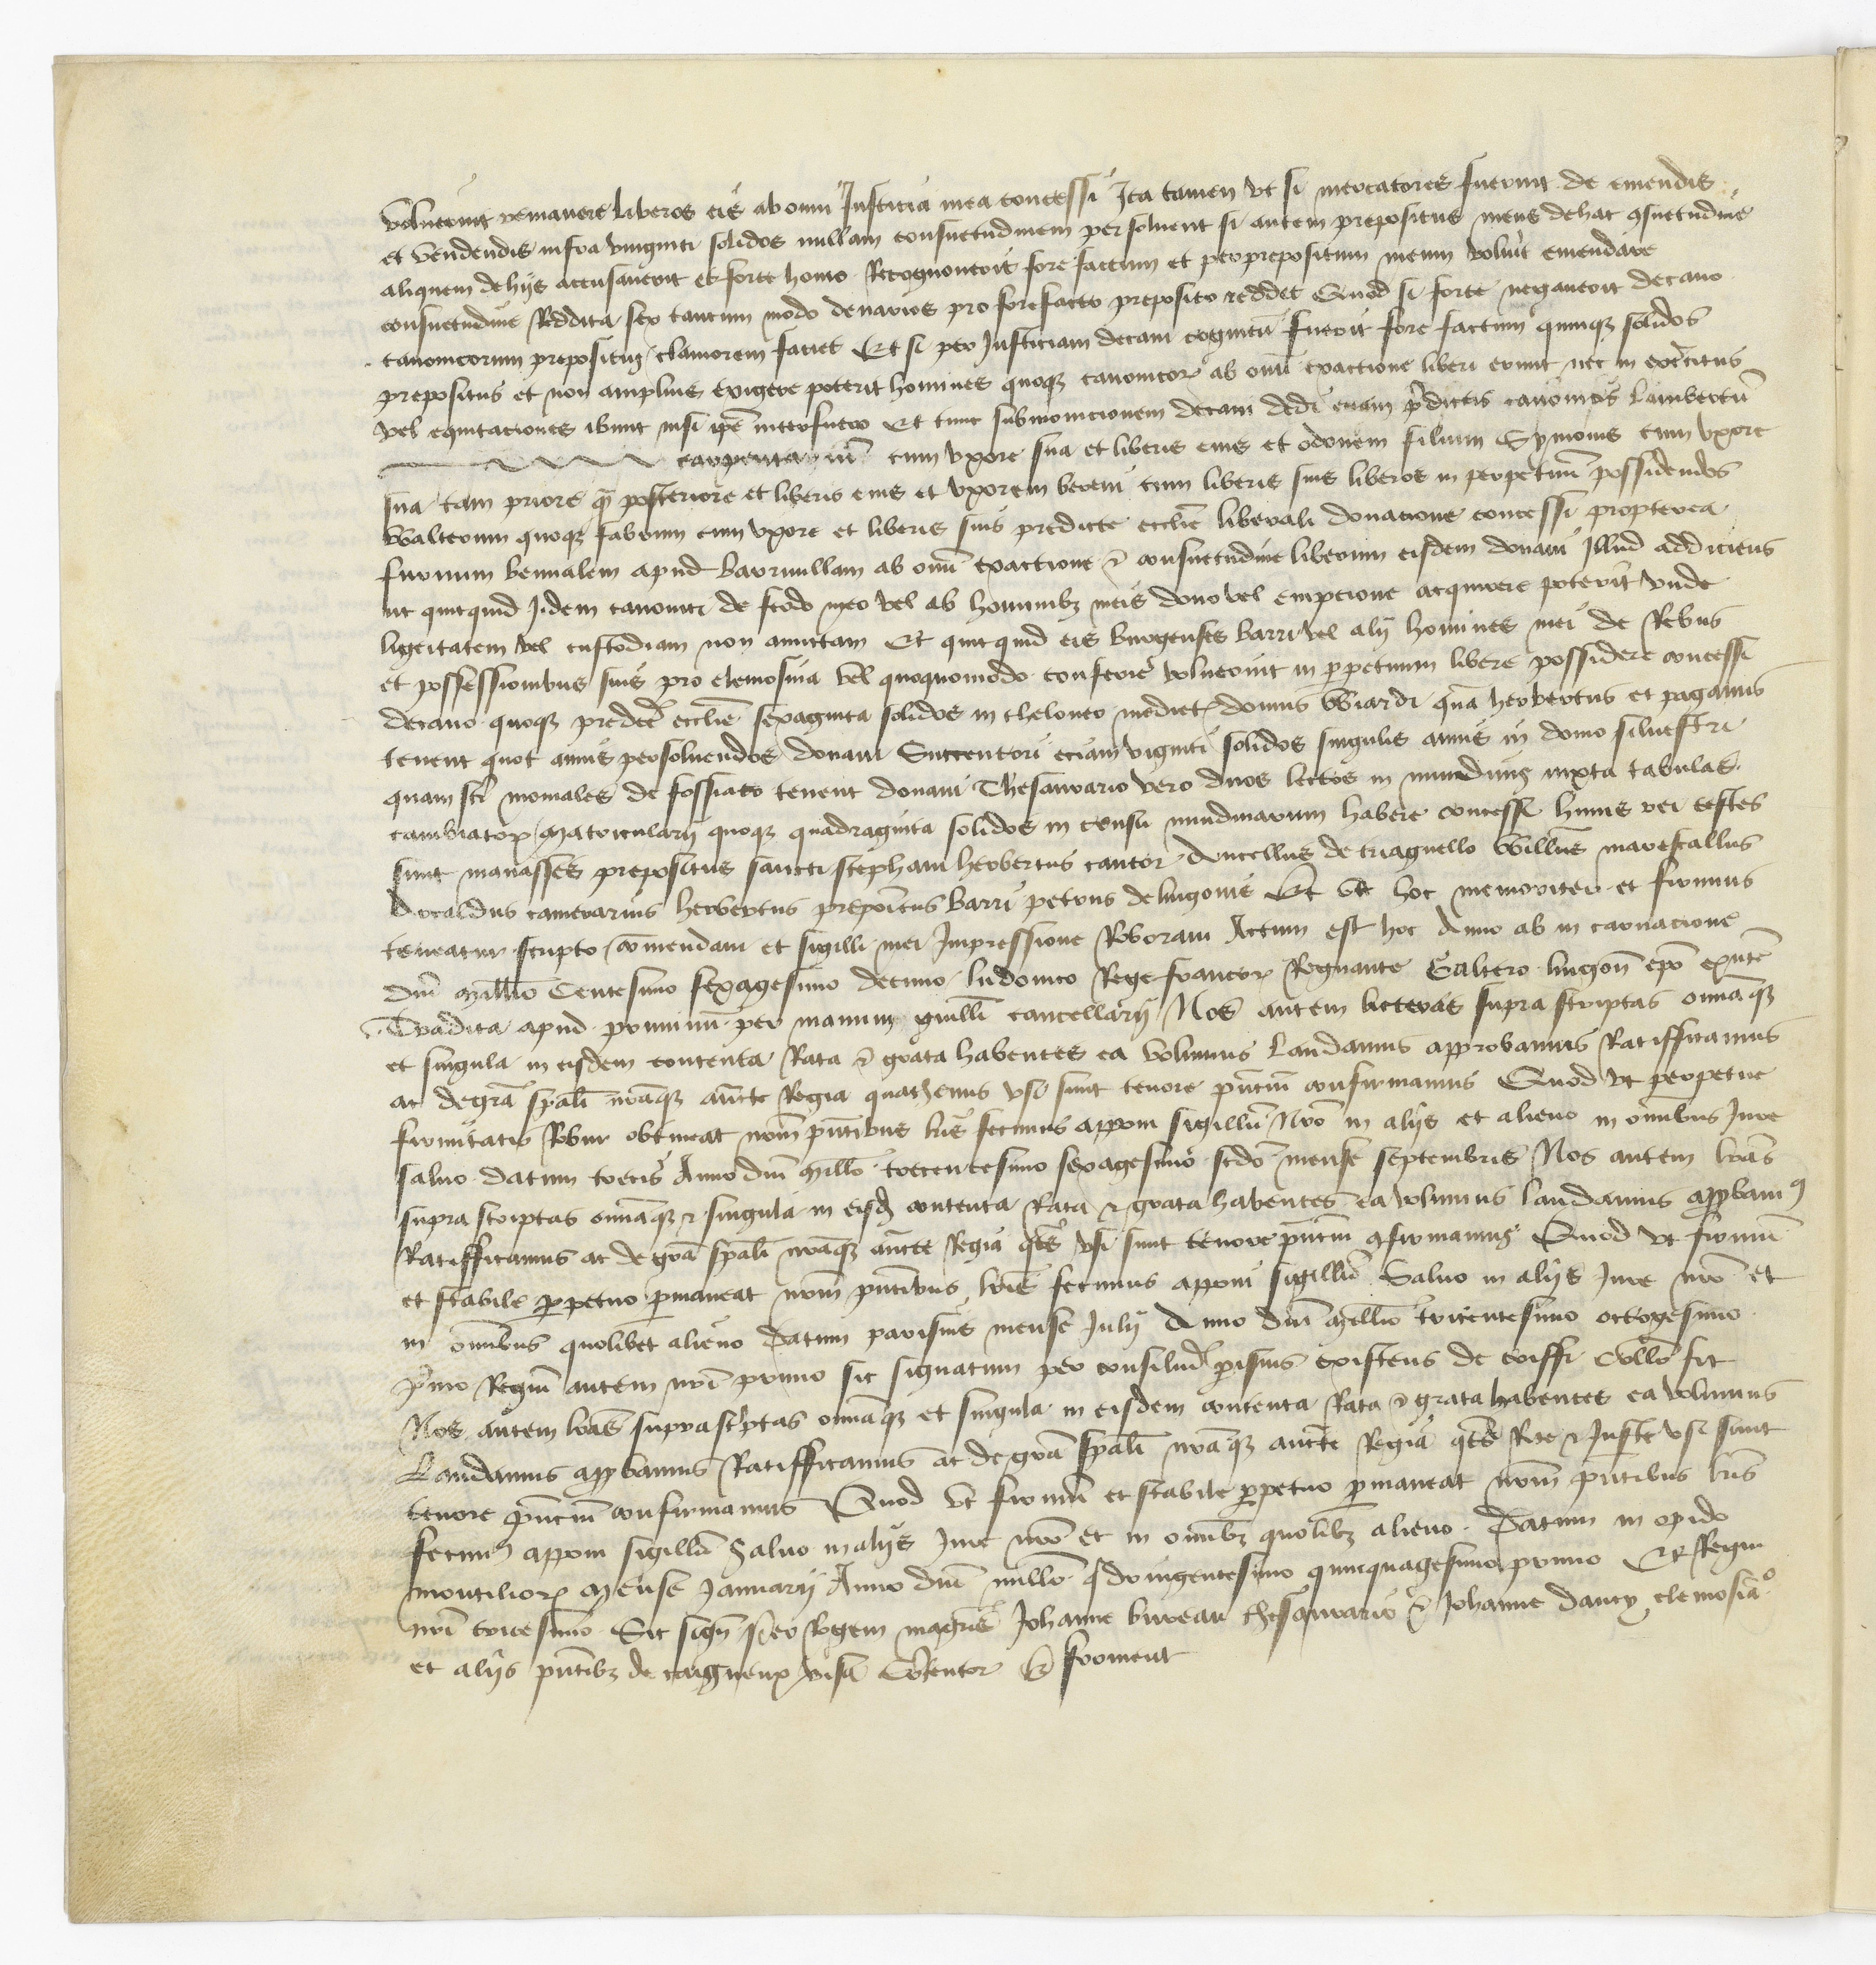 voluerint remanere liberos eis ab omni Justicia mea concessi Ita tamen vt si mercatores fuerint de emendis
et vendendis infra viiginti solidos nullam consuetudinem persoluent si autem prepositus meus de hac 9suetudine
aliquem de hijs accusauerit et forte homo Recognouerit fore factum et per prepositum meum voluit emendare
consuetudine Reddita sex tantum modo denarios pro forefacto preposito reddet Quod si forte negauerit decano
canonicorum prepositus clamorem faciet Et si per Justiciam decani cognitu fuerit fore factum quinqz solidos
prepositus et non amplius exigere poterit homines quoqz canonicor ab omi exactione liberi erunt nec in exercitus
vel equitaciones ibunt nisi ipe interfuero Et tunc submonicionem decani dedi eciam pdictis canonicis lambertu
carpentariu cum vxore sua et liberis eius et odonem filium Symonis cum vxore
sua tam priore qz posteriore et liberis eius et vxorem bereni cum liberis suis liberos in perpetuu possidendos
Walterum quoqz fabrum cum vxore et liberis suis predicte ecclie liberali donacione concessi propterea
furnum bennalem apud barrivillam ab omi exactione et consuetudine liberum eisdem donaui Illud addiciens
ut quicquid Jidem canonici de feodo meo vel ab hominibz meis dono vel empcione acquirere poterit vnde
ligeitatem vel custodiam non amittam Et quicquid eis burgenses barri vel alij homines mei de Rebus
et possessionibus suis pro elemosina vel quoquomodo conferre voluerint in ppetuum libere possidere concessi
decano quoqz predce ecclie sexaginta solidos in theloneo mediet domus Wiardi qua herbertus et paganus
tenent quot annis persoluendos donaui Succentori eciam viginti solidos singulis annis in domo siluestri
quam sci moniales de fossiaco tenent donaui Thesaurario vero duos lectos in nundinis iuxta tabulas
cambiator matricularij quoqz quadraginta solidos in censu nundinarum habere concessi huius rei testes
sunt manasses prepositus sancti stephani herbertus cantor Ancellus de triagnello Willus marescallus
Artaldus camerarius herbertus prepoitus barri petrus de lingonis Et vt hoc memoriter et firmius
teneatur scripto comendaui et sigilli mei Impressione Roboraui Actum est hoc Anno ab in carnacione
dni millio Centesimo sexagesimo decimo ludouico Rege francor Regnante Galtero lingon epo existe
Tradita apud pruuinu per manum guilli cancellarij Nos autem litteras supra scriptas omiaqz
et singula in eisdem contenta Rata et grata habentes ea volumus laudamus approbamus Ratifficamus
ac de gra spali nraqz aucte Regia quathenus vsi sunt tenore pntiu confirmamus Quod vt perpetue
firmitatis Robur obtineat nrom pntibus lris fecimus apponi sigillu Nro in alijs et alieno in omibus Jure
saluo datum trecis Anno dni millo trecentesimo sexagesimo scdo mense septembris Nos autem lras
supra scriptas omiaqz et singula in eisd contenta Rata et grata habentes ea volumus laudamus approbam9
Ratifficamus ac de gra spali nraqz aucte Regia qts vsi sunt tenore pntiu 9firmamus Quod vt firmu
et stabile ppetuo pmaneat nrom pntibus lris fecimus apponi sigillu Saluo in alijs Jure nro et
in omibus quolibet alieno Datum parisius mense Julij Anno dni millo tricentesimo octogesimo
pmo Regni autem nri primo sic signatum per consiliu parisius existens de crissi Collo fit
Nos autem lras suprascriptas omiaqz et singula in eisdem contenta Rata et grata habentes ea volumus
Laudamus approbamus Ratifficamus ac de gra spali nraqz aucte Regia qts Rite et Juste vsi sunt
tenore pntiu confirmamus Quod vt firmu et stabile ppetuo pmaneat nrom pntibus lris
fecim9 apponi sigillu Saluo in alijs Jure nro et in omibz quolibz alieno Datum in opido
montilior Mense Januarij Anno dni millo qdringentesimo quinquagesimo primo Et Regni
nri tricesimo Sic sign per Regem magro Johanne bureau thesaurario et Johanne dancy elemosia
et alijs pntibz de caigneux visa Contentor E froment